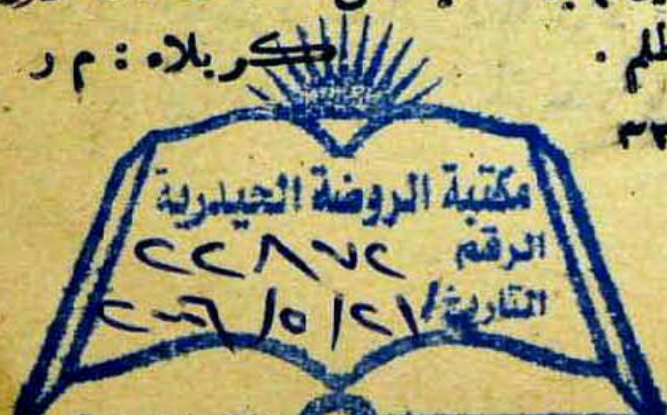 كربلاء : م ر
مكتبة الروضة الحيدرية
الرقم ٢٢٨٧٢
التاريخ ٢٠٠٦/٥/٢١